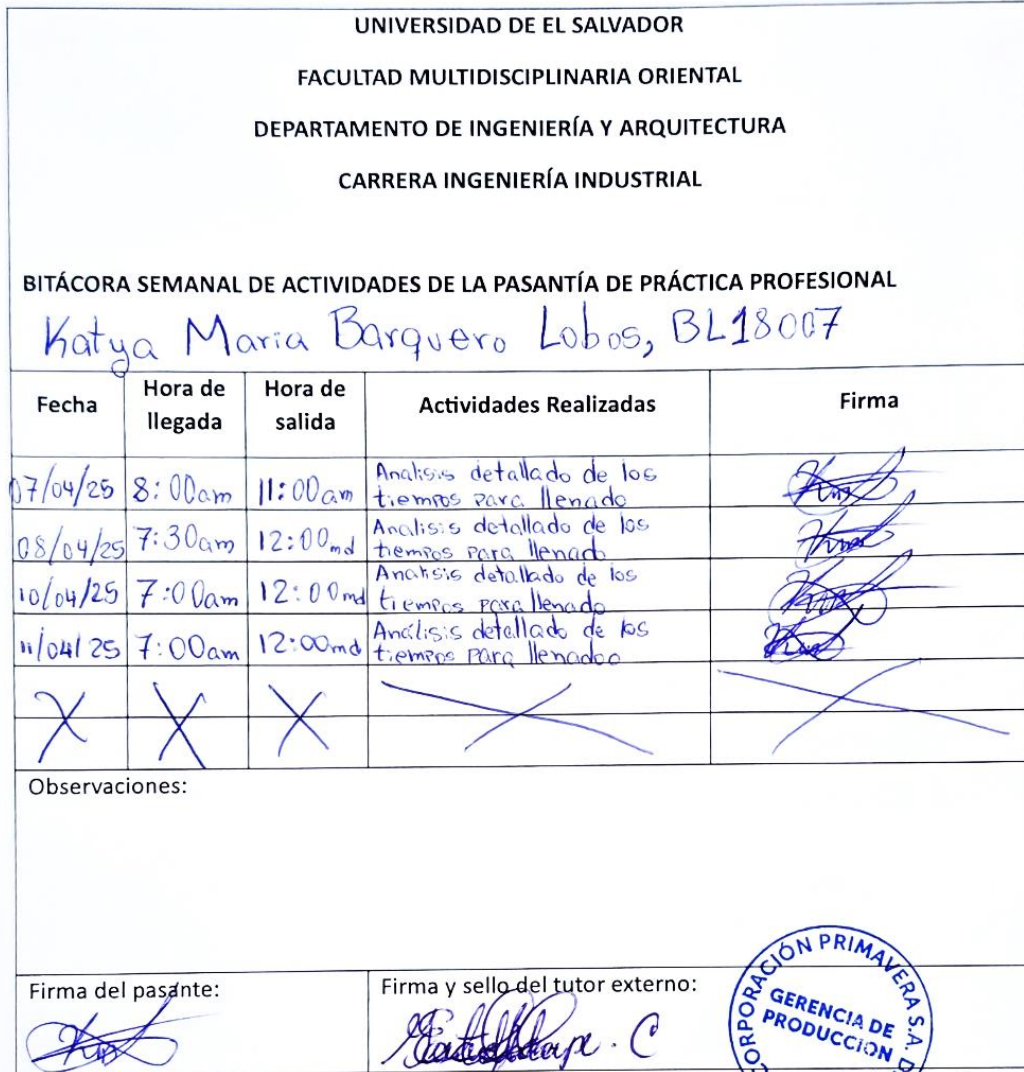 UNIVERSIDAD DE EL SALVADOR
FACULTAD MULTIDISCIPLINARIA ORIENTAL
DEPARTAMENTO DE INGENIERÍA Y ARQUITECTURA
CARRERA INGENIERÍA INDUSTRIAL
BITÁCORA SEMANAL DE ACTIVIDADES DE LA PASANTÍA DE PRÁCTICA PROFESIONAL
Katya Maria Barquero Lobos, BL18007
Fecha Hora de llegada Hora de salida Actividades Realizadas Firma
07/04/25 8:00am 11:00am Analisis detallado de los tiempos para llenado
08/04/25 7:30am 12:00md Analisis detallado de los tiempos para llenado
10/04/25 7:00am 12:00md Analisis detallado de los tiempos para llenado
11/04/25 7:00am 12:00md Análisis detallado de los tiempos para llenadoo
Observaciones:
Firma del pasante: Firma y sello del tutor externo:
CORPORACIÓN PRIMAVERA S.A. D
GERENCIA DE
PRODUCCIÓN